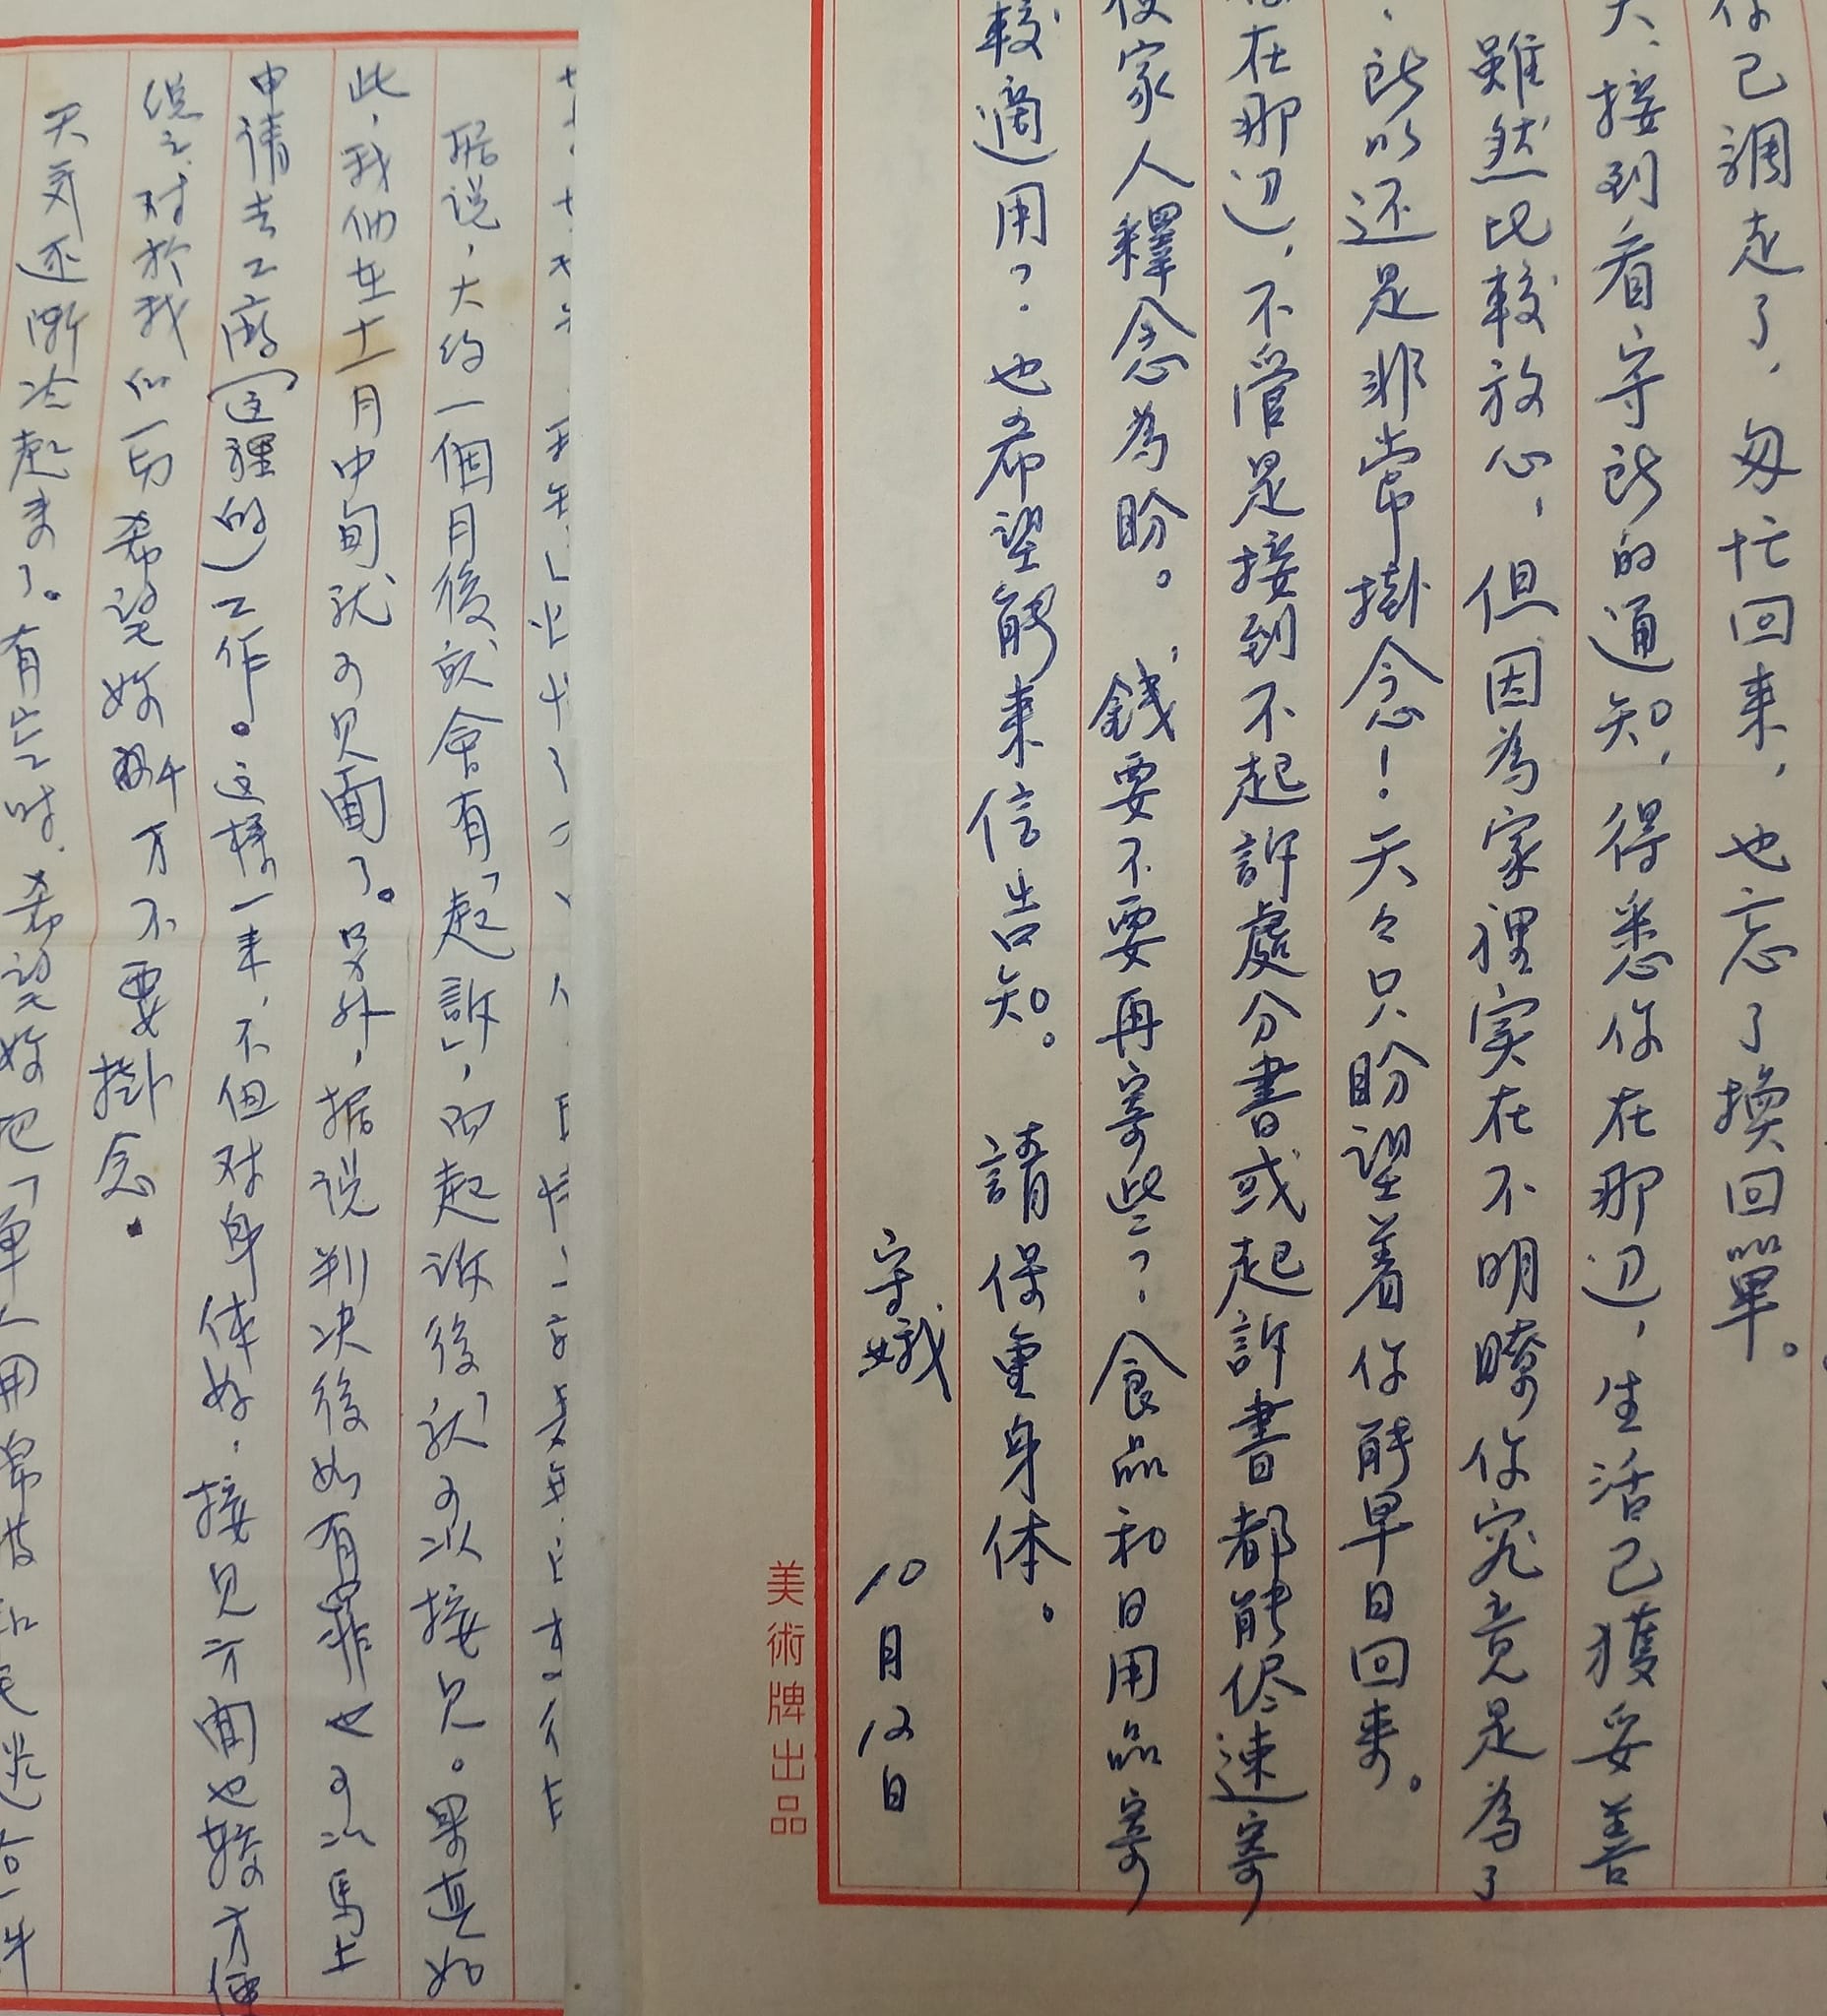 你已調走了，匆忙回来，也忘了換回單。
天、接到看守所的通知，得悉你在那边，生活已獲妥善
雖然比較放心，但因為家裡实在不明瞭你究竟是為了
，所以还是非常掛念！天々只盼望着你能早日回来。
在那边，不管是接到不起訴處分書或起訴書都能儘速寄
使家人釋念為盼。錢要不要再寄些？食品和日用品寄
較適用？也希望能来信告知。 請保重身体。
守娥 10月12日
美術牌出品
据说，大约一個月後就會有「起訴」，而起诉後就可以接见。果真如
此，我们在十一月中旬就可见面了。另外，据说判决後如有罪也可以馬上
申请去工廠(这裡的)工作。这樣一来，不但对身体好，接见方面也較方便
总之，对於我们一切希望妳放心不要掛念。
天氣逐漸冷起来了。有空时，希望妳把「單人用